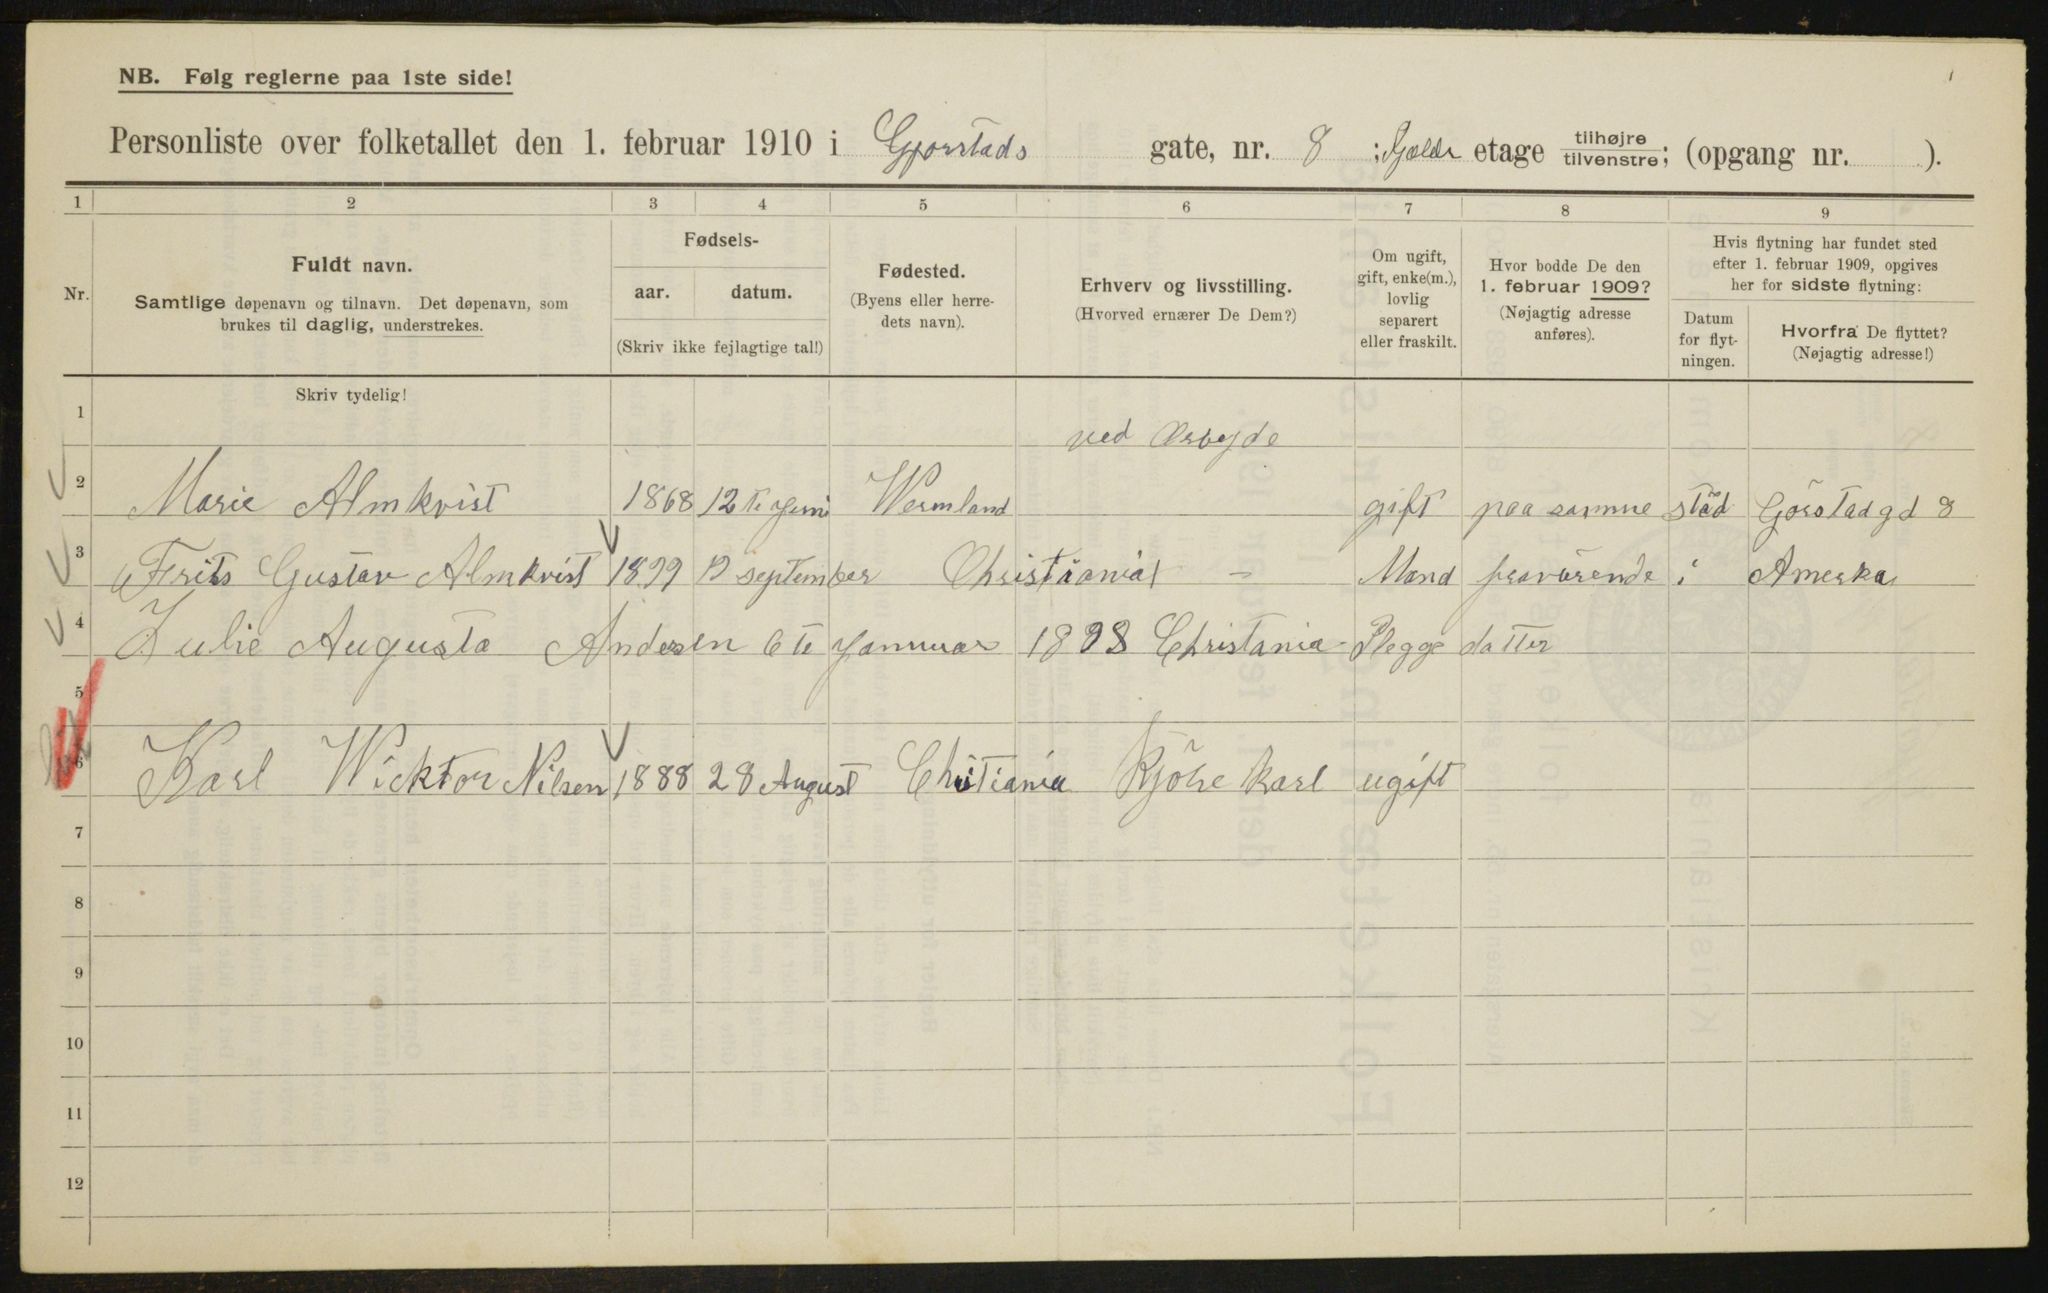 NB. Følg reglerne paa 1ste side!
Personliste over folketallet den 1. februar 1910 i Gjorstads gate, nr. 8 ; Kjælder etage tilhøjre/tilvenstre; (opgang nr. ).
1 2 3 4 5 6 7 8 9
Nr.
Fuldt navn.
Samtlige døpenavn og tilnavn. Det døpenavn, som
brukes til daglig, understrekes.
Fødsels-
aar. datum.
(Skriv ikke fejlagtige tal!)
Fødested.
(Byens eller herre-
dets navn).
Erhverv og livsstilling.
(Hvorved ernærer De Dem?)
Om ugift,
gift, enke(m.),
lovlig
separert
eller fraskilt.
Hvor bodde De den
1. februar 1909?
(Nøjagtig adresse
anføres).
Hvis flytning har fundet sted
efter 1. februar 1909, opgives
her for sidste flytning:
Datum
for flyt-
ningen.
Hvorfra De flyttet?
(Nøjagtig adresse!)
Skriv tydelig!
1 ved Orbejde
2 Marie Almkvist 1868 12 te Juni Wermland gift paa samme städ Görstad gd 8
3 Frits Gustav Almkvist 1899 19 september Christiania - Mand fraværende i Amerka
4 Julie Augusta Andersen 6 te Januar 1898 Christania - Plegge datter
5
6 Karl Wicktor Nilsen 1888 28 August Christiania Kjöre karl ugift
7
8
9
10
11
12